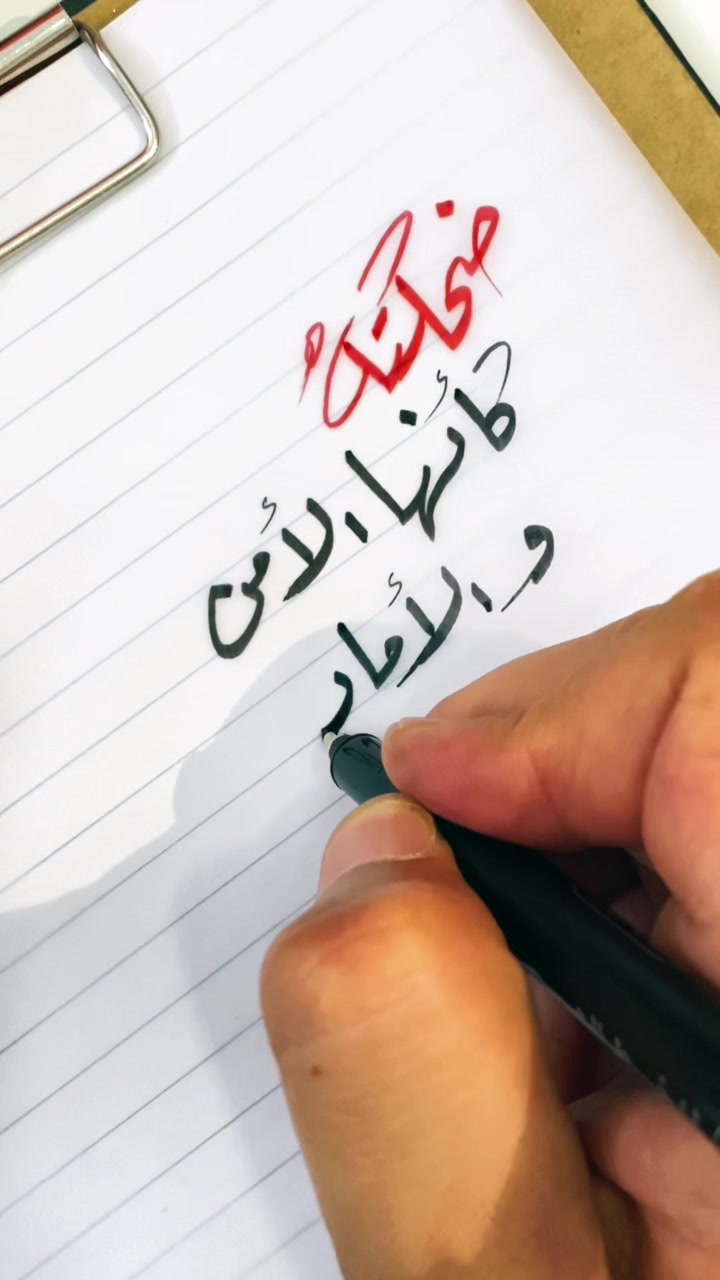 ضحكتهُ
كأنها الأمن
و الأمان